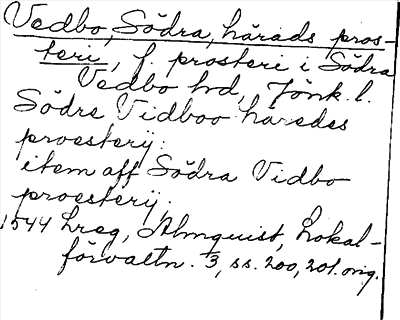 Vedbo, Södra, härads pros-
teri, f. prosteri i Södra
Vedbo hd, Jönk. l.
Södre Vidboo häredes
proesterÿ:
item aff Södra Vidbo
proesterij,
1544 Lreg, Almquist, Lokal-
förvaltn. 3, ss. 200, 201. orig.